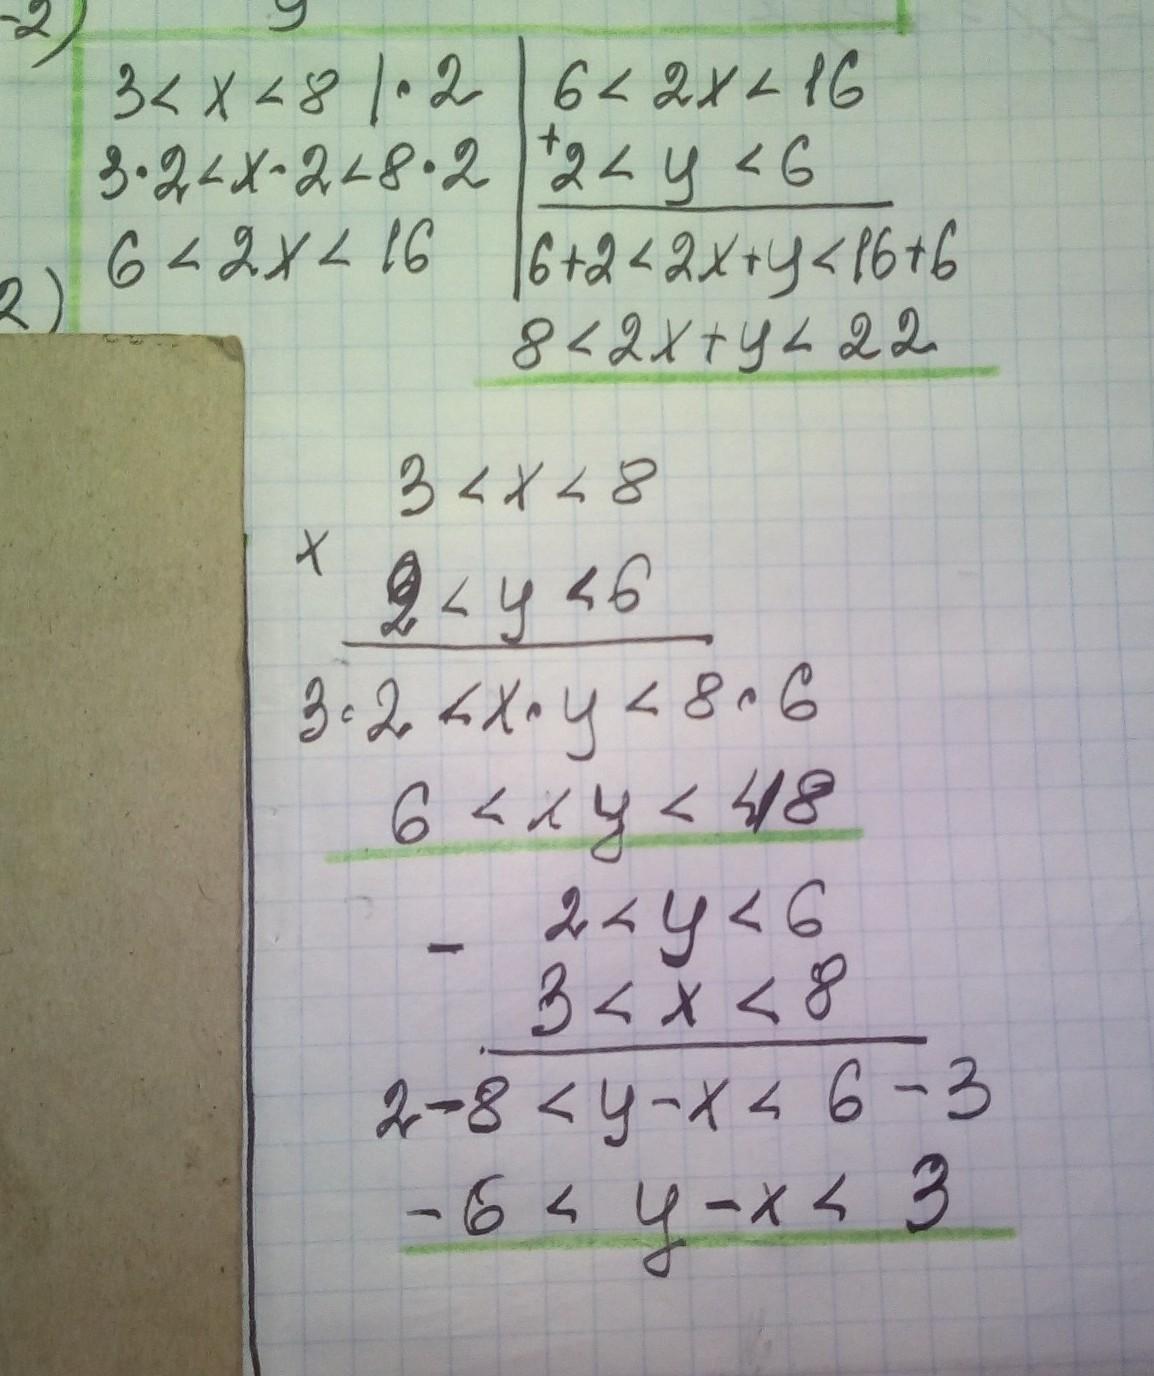 -2) y
3 < x < 8 | · 2
3 · 2 < x · 2 < 8 · 2
6 < 2x < 16
6 < 2x < 16
+ 2 < y < 6
6 + 2 < 2x + y < 16 + 6
8 < 2x + y < 22
2)
3 < x < 8
x
2 < y < 6
3 · 2 < x · y < 8 · 6
6 < xy < 48
2 < y < 6
-
3 < x < 8
2 - 8 < y - x < 6 - 3
- 6 < y - x < 3